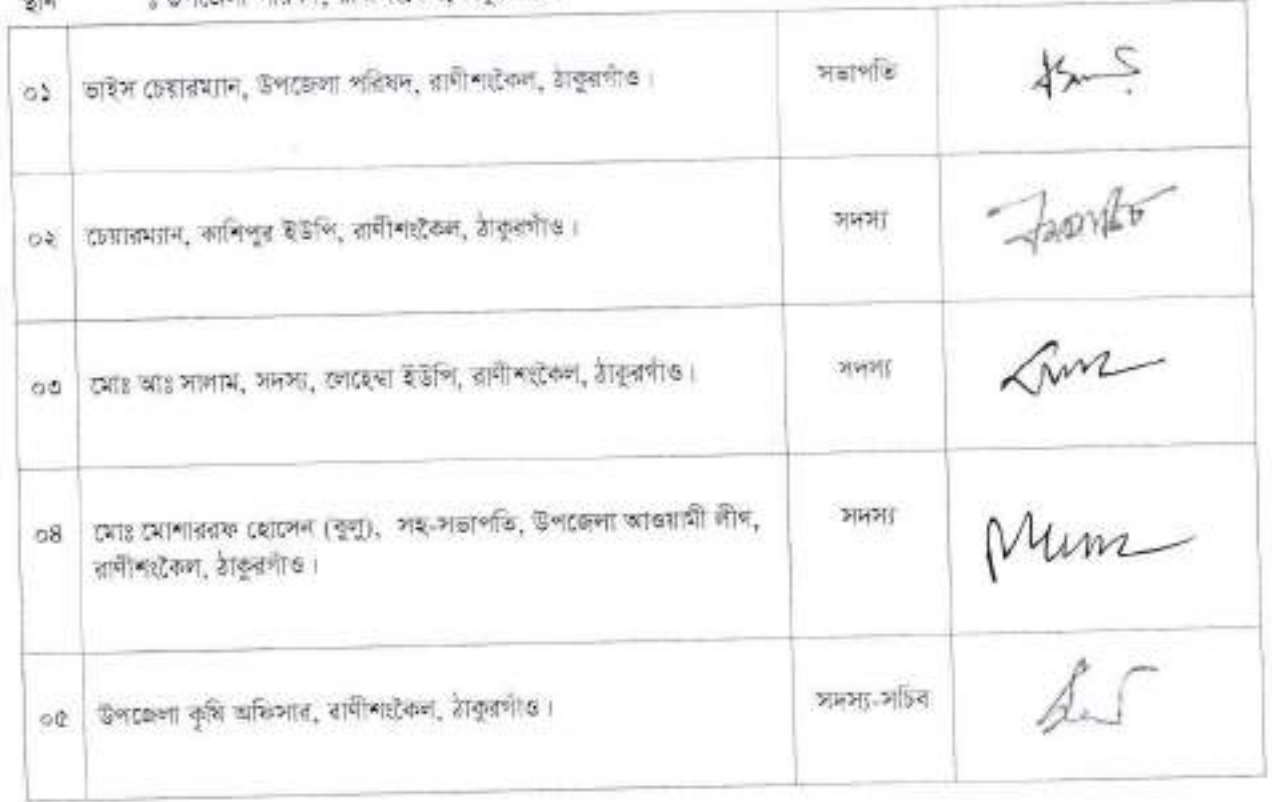 স্থান : উপজেলা পরিষদ, রাণীশংকৈল, ঠাকুরগাঁও।
০১ ভাইস চেয়ারম্যান, উপজেলা পরিষদ, রাণীশংকৈল, ঠাকুরগাঁও। সভাপতি
০২ চেয়ারম্যান, কাশিপুর ইউপি, রাণীশংকৈল, ঠাকুরগাঁও। সদস্য
০৩ মোঃ আঃ সালাম, সদস্য, লেহেম্বা ইউপি, রাণীশংকৈল, ঠাকুরগাঁও। সদস্য
০৪ মোঃ মোশাররফ হোসেন (বুলু), সহ-সভাপতি, উপজেলা আওয়ামী লীগ, সদস্য
রাণীশংকৈল, ঠাকুরগাঁও।
০৫ উপজেলা কৃষি অফিসার, রাণীশংকৈল, ঠাকুরগাঁও। সদস্য-সচিব